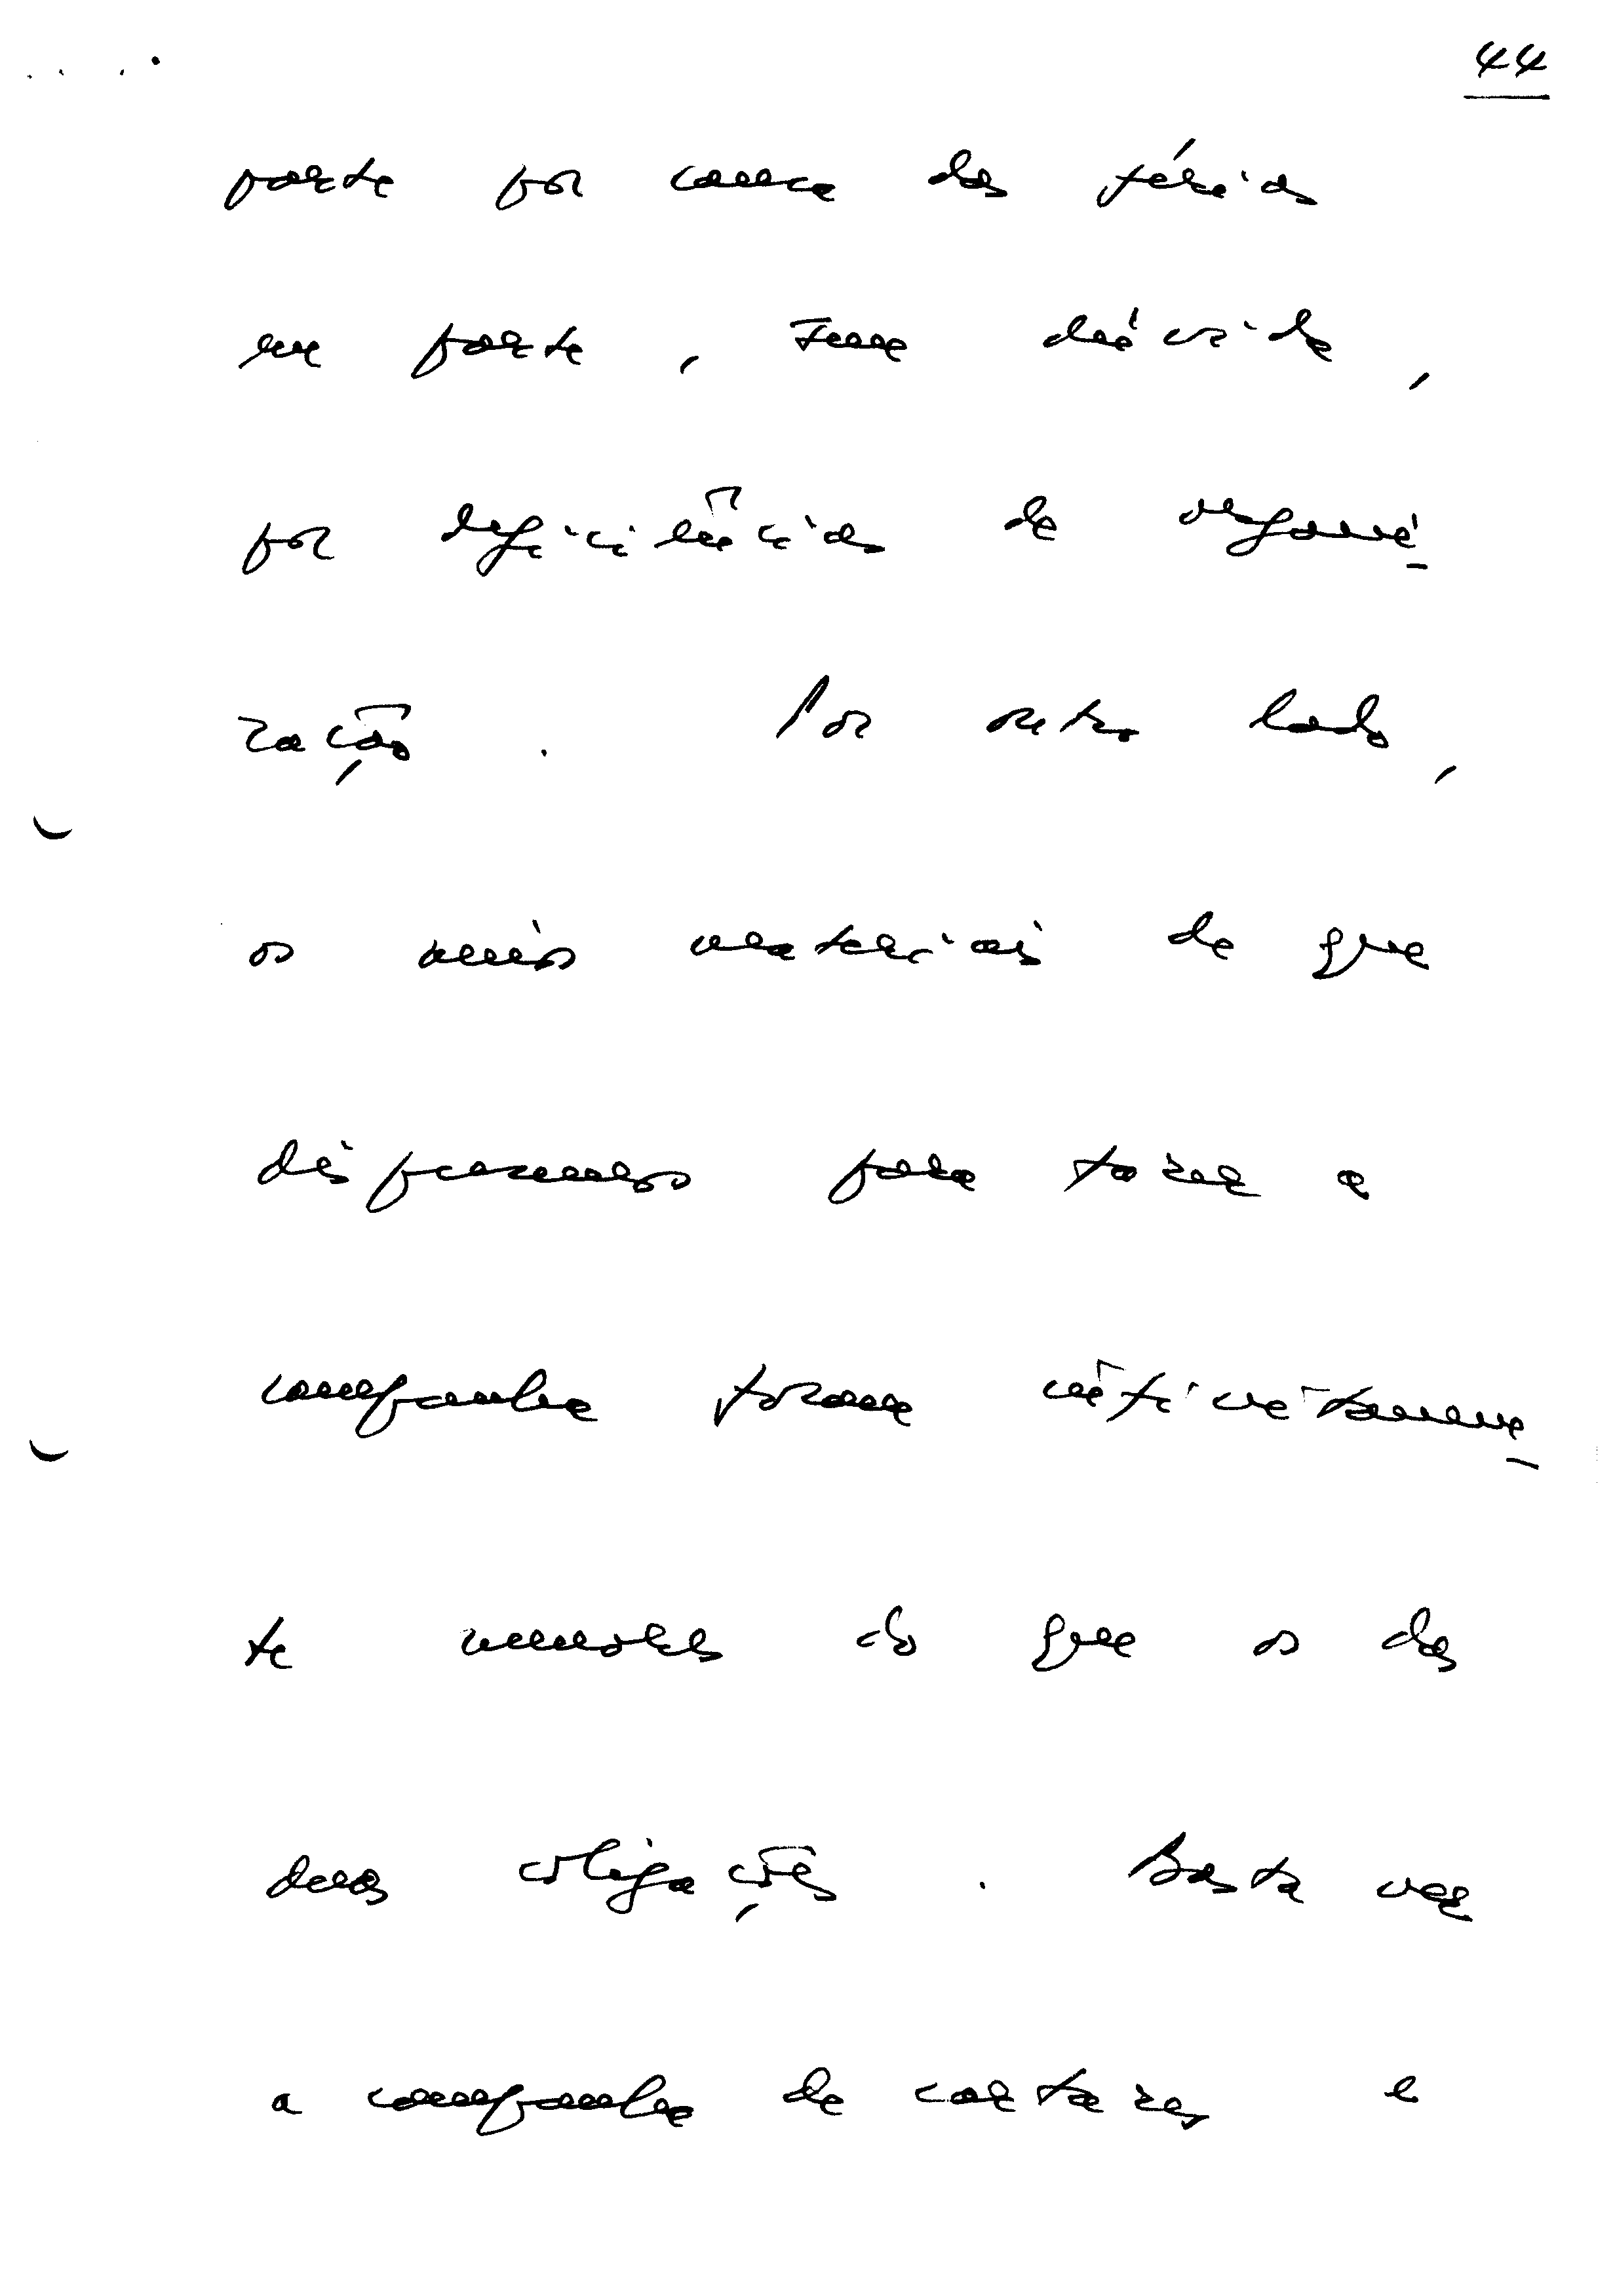 44
parte por causa das férias
em parte, sem dúvida,
por deficiências de organi-
zação. Por outro lado,
os meios materiais de que
dispunhamos para fazer a
campanha foram infinitamen-
te menores do que os das
duas coligações. Basta ver
a campanha de cartazes e